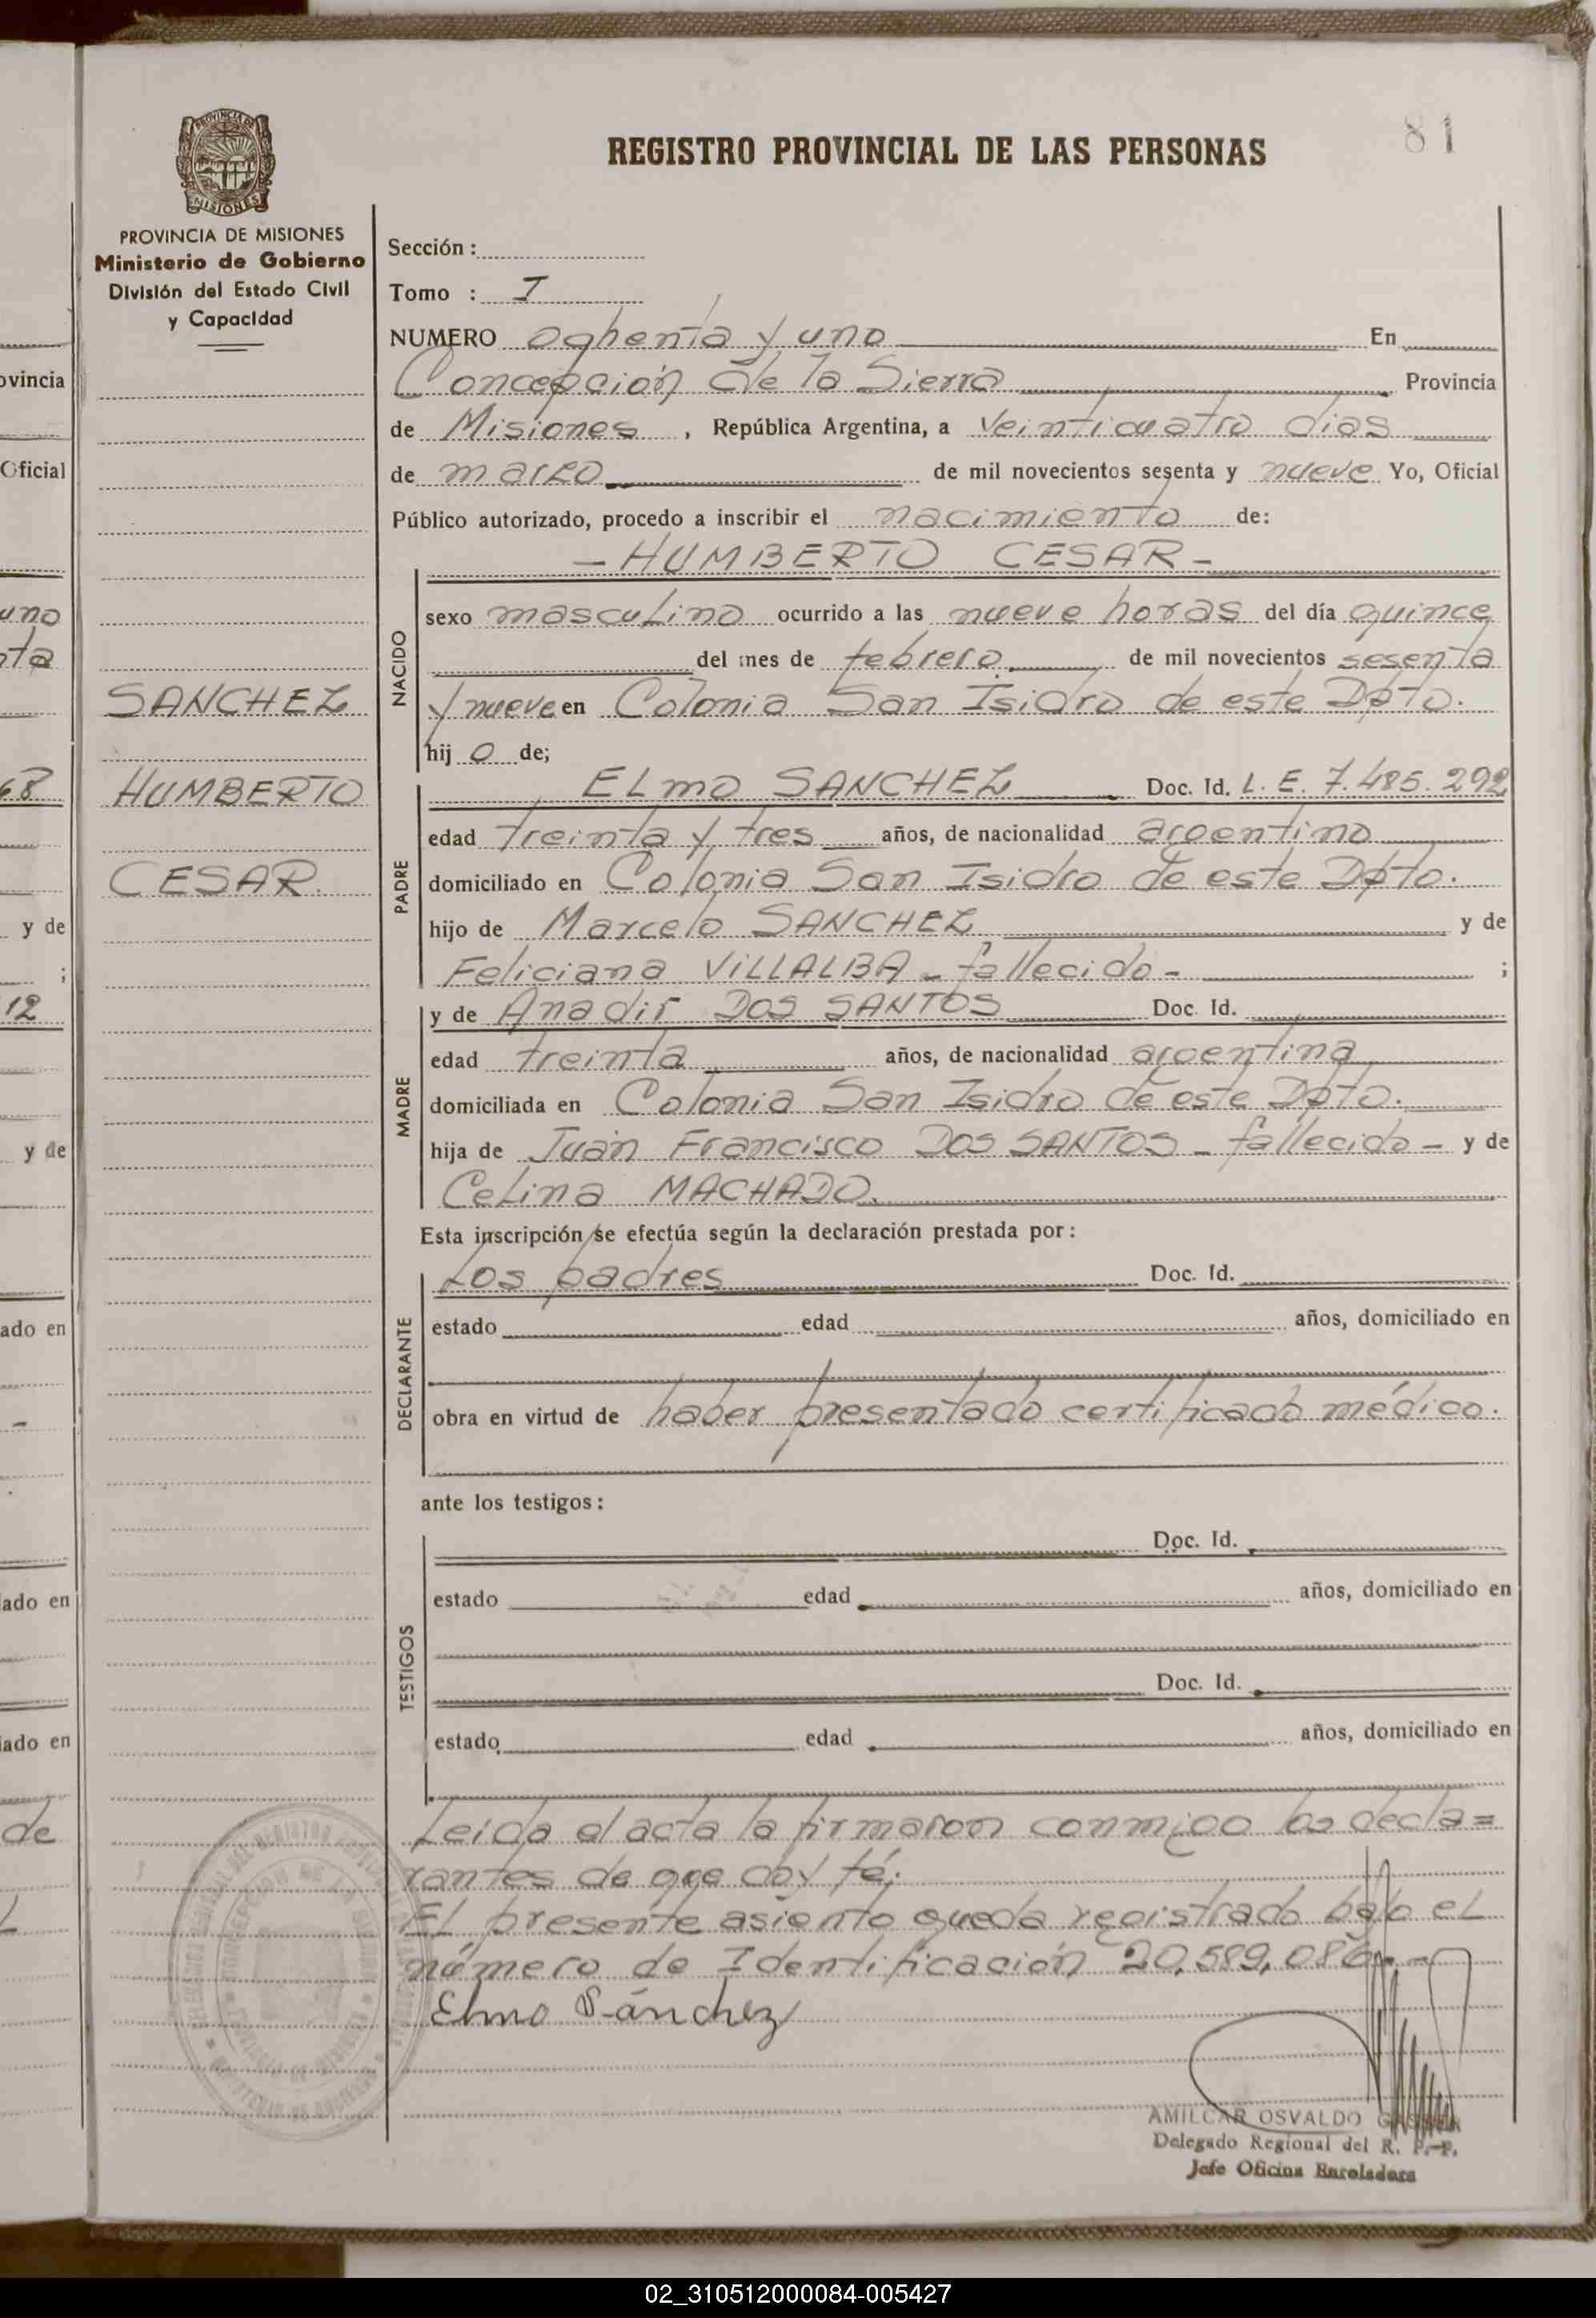 81
REGISTRO PROVINCIAL DE LAS PERSONAS
PROVINCIA DE MISIONES
Ministerio de Gobierno
División del Estado Civil
y Capacidad
Sección :
Tomo : I
NUMERO oghenta y uno En
Concepción de la Sierra Provincia
de Misiones , República Argentina, a veinticuatro dias
de marzo de mil novecientos sesenta y nueve Yo, Oficial
Público autorizado, procedo a inscribir el nacimiento de:
- HUMBERTO CESAR -
NACIDO
sexo masculino ocurrido a las nueve horas del día quince
del mes de febrero de mil novecientos sesenta
y nueve en Colonia San Isidro de este Dpto.
hij o de;
SANCHEZ
HUMBERTO
CESAR.
PADRE
ELmo SANCHEZ Doc. Id. L. E. 7.485.292
edad treinta y tres años, de nacionalidad argentino
domiciliado en Colonia San Isidro de este Dpto.
hijo de Marcelo SANCHEZ y de
Feliciana VILLALBA - fallecido - ;
MADRE
y de Anadir DOS SANTOS Doc. Id.
edad treinta años, de nacionalidad argentina
domiciliada en Colonia San Isidro de este Dpto.
hija de Juan Francisco DOS SANTOS - fallecido - y de
Celina MACHADO.
Esta inscripción se efectúa según la declaración prestada por :
DECLARANTE
Los padres Doc. Id.
estado edad años, domiciliado en
obra en virtud de haber presentado certificado médico.
ante los testigos :
TESTIGOS
Doc. Id.
estado edad años, domiciliado en
Doc. Id.
estado edad años, domiciliado en
Leida el acta la firmaron conmigo los decla=
rantes de que doy fé.
El presente asiento queda registrado bajo el
número de Identificación 20.589.086.-
Elmo Sánchez
AMILCAR OSVALDO
Delegado Regional del R. P. P.
Jefe Oficina Enroladora
02_310512000084-005427